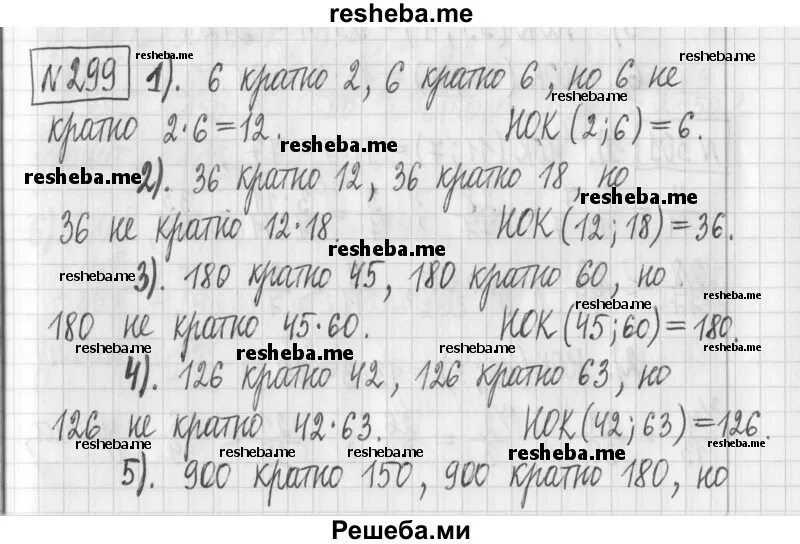 resheba.me
№299 1). 6 кратно 2, 6 кратно 6, но 6 не
resheba.me
resheba.me
resheba.me
кратно 2·6=12. НОК(2;6)=6.
resheba.me
resheba.me 2). 36 кратно 12, 36 кратно 18, но
resheba.me
36 не кратно 12·18. НОК(12;18)=36.
resheba.me
resheba.me 3). 180 кратно 45, 180 кратно 60, но
resheba.me
resheba.me
180 не кратно 45·60. НОК(45;60)=180.
resheba.me
resheba.me
resheba.me
resheba.me
4). 126 кратно 42, 126 кратно 63, но
126 не кратно 42·63. НОК(42;63)=126.
resheba.me
resheba.me
resheba.me
resheba.me
5). 900 кратно 150, 900 кратно 180, но
Решеба.ми